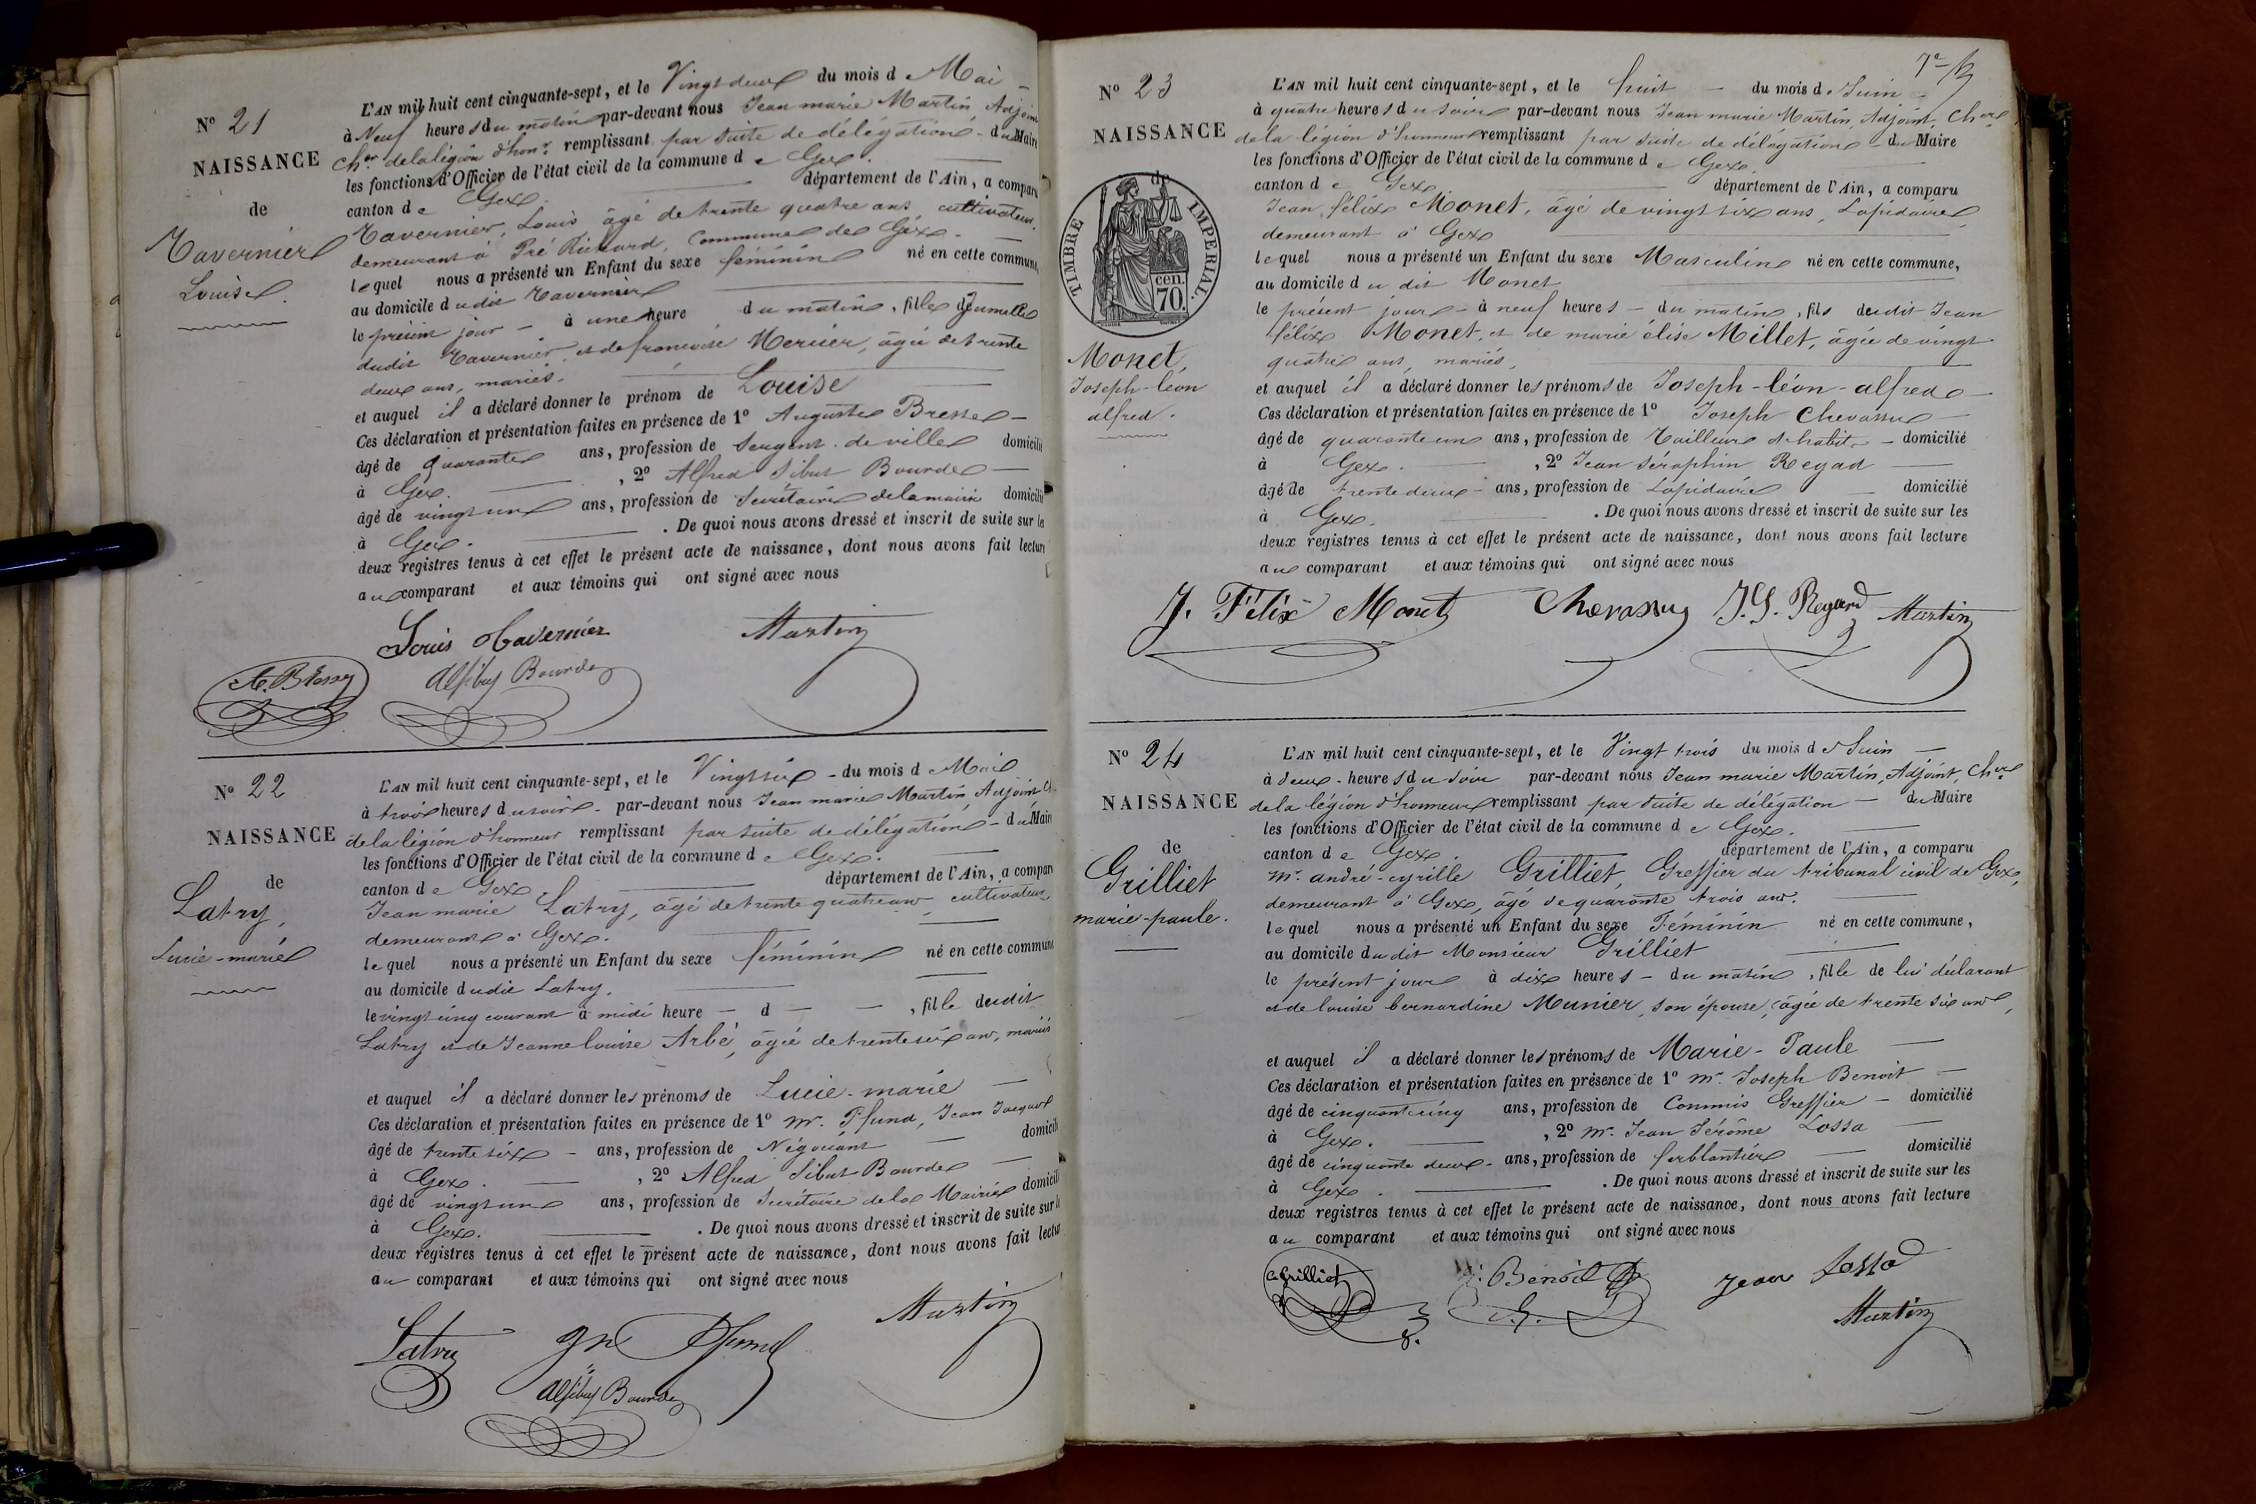 N° 21
NAISSANCE
de
Tavernier
Louise.
L'AN mil huit cent cinquante-sept, et le Vingt deux du mois d e Mai
à Neuf heures du matin par-devant nous Jean marie Martin Adjoint
Cher de la légion d'honr remplissant par suite de délégation du Maire
les fonctions d'Officier de l'état civil de la commune d e Gex.
canton d e Gex. département de l'Ain, a comparu
Tavernier, Louis âgé de trente quatre ans, cultivateur,
demeurant à Pré Richard, Commune de Gex.
lequel nous a présenté un Enfant du sexe féminin né en cette commune,
au domicile d udit Tavernier
le présent jour à une heure du matin, fille Jumelle
dudit Tavernier et de françoise Mercier, âgée de trente
deux ans, mariés.
et auquel il a déclaré donner le prénom de Louise
Ces déclaration et présentation faites en présence de 1° Auguste Bresse
âgé de quarante ans, profession de Sergent de ville domicilié
à Gex. , 2° Alfred Sibut Bourde
âgé de vingt un ans, profession de Secrétaire de la mairie domicilié
à Gex. . De quoi nous avons dressé et inscrit de suite sur les
deux registres tenus à cet effet le présent acte de naissance, dont nous avons fait lecture
au comparant et aux témoins qui ont signé avec nous
Louis Tavernier Martin
A. Bresse Alf Sibut Bourde
N° 22
NAISSANCE
de
Latry,
Lucie-marie
L'AN mil huit cent cinquante-sept, et le Vingt six du mois d e Mai
à trois heures du soir par-devant nous Jean marie Martin, Adjoint, Ch
de la légion d'honneur remplissant par suite de délégation du Maire
les fonctions d'Officier de l'état civil de la commune d e Gex.
canton d e Gex département de l'Ain, a comparu
Jean marie Latry, âgé de trente quatre ans, cultivateur,
demeurant à Gex.
lequel nous a présenté un Enfant du sexe féminin né en cette commune
au domicile dudit Latry,
le vingt cinq courant à midi heure d , fille dudit
Latry et de Jeanne louise Arbé, âgée de trente six ans, mariés
et auquel il a déclaré donner les prénoms de Lucie-marie
Ces déclaration et présentation faites en présence de 1° Mr. Pfund, Jean Jacques
âgé de trente six ans, profession de Négociant domicilié
à Gex. , 2° Alfred Sibut Bourde
âgé de vingt un ans, profession de Secrétaire de la Mairie domicilié
à Gex. . De quoi nous avons dressé et inscrit de suite sur les
deux registres tenus à cet effet le présent acte de naissance, dont nous avons fait lecture
au comparant et aux témoins qui ont signé avec nous
Latry Pfund Martin
Alf Sibut Bourde
7e
N° 23
NAISSANCE
de
TIMBRE IMPERIAL.
70 cen.
Monet,
Joseph-léon
alfred.
L'AN mil huit cent cinquante-sept, et le huit du mois d e Juin
à quatre heures du soir par-devant nous Jean marie Martin, Adjoint, Cher
de la légion d'honneur remplissant par suite de délégation du Maire
les fonctions d'Officier de l'état civil de la commune d e Gex.
canton d e Gex département de l'Ain, a comparu
Jean félix Monet, âgé de vingt six ans, Lapidaire,
demeurant à Gex
lequel nous a présenté un Enfant du sexe Masculin né en cette commune,
au domicile d u dit Monet
le présent jour à neuf heures du matin, fils dudit Jean
félix Monet, et de marie élise Millet, âgée de vingt
quatre ans, mariés,
et auquel il a déclaré donner les prénoms de Joseph-léon-alfred
Ces déclaration et présentation faites en présence de 1° Joseph Chevassus
âgé de quarante un ans, profession de Tailleur d'habits domicilié
à Gex. , 2° Jean Séraphin Regad
âgé de trente deux ans, profession de Lapidaire domicilié
à Gex. . De quoi nous avons dressé et inscrit de suite sur les
deux registres tenus à cet effet le présent acte de naissance, dont nous avons fait lecture
au comparant et aux témoins qui ont signé avec nous
J. Félix Monet Chevassus J. S. Regad Martin
N° 24
NAISSANCE
de
Grilliet
marie-paule.
L'AN mil huit cent cinquante-sept, et le Vingt trois du mois d e Juin
à deux heures du soir par-devant nous Jean marie Martin, Adjoint, Cher
de la légion d'honneur remplissant par suite de délégation du Maire
les fonctions d'Officier de l'état civil de la commune d e Gex.
canton d e Gex. département de l'Ain, a comparu
Mr. andré-cyrille Grilliet, Greffier du tribunal civil de Gex,
demeurant à Gex, âgé de quarante trois ans.
lequel nous a présenté un Enfant du sexe Féminin né en cette commune,
au domicile du dit Monsieur Grilliet
le présent jour à dix heures du matin, fille de lui déclarant
et de louise bernardine Munier, son épouse, âgée de trente six ans,
et auquel il a déclaré donner les prénoms de Marie-Paule
Ces déclaration et présentation faites en présence de 1° Mr. Joseph Benoit
âgé de cinquante cinq ans, profession de Commis Greffier domicilié
à Gex. , 2° Mr. Jean Jérôme Lossa
âgé de cinquante deux ans, profession de ferblantier domicilié
à Gex. . De quoi nous avons dressé et inscrit de suite sur les
deux registres tenus à cet effet le présent acte de naissance, dont nous avons fait lecture
au comparant et aux témoins qui ont signé avec nous
Grilliet J. Benoit Jean Lossa
Martin